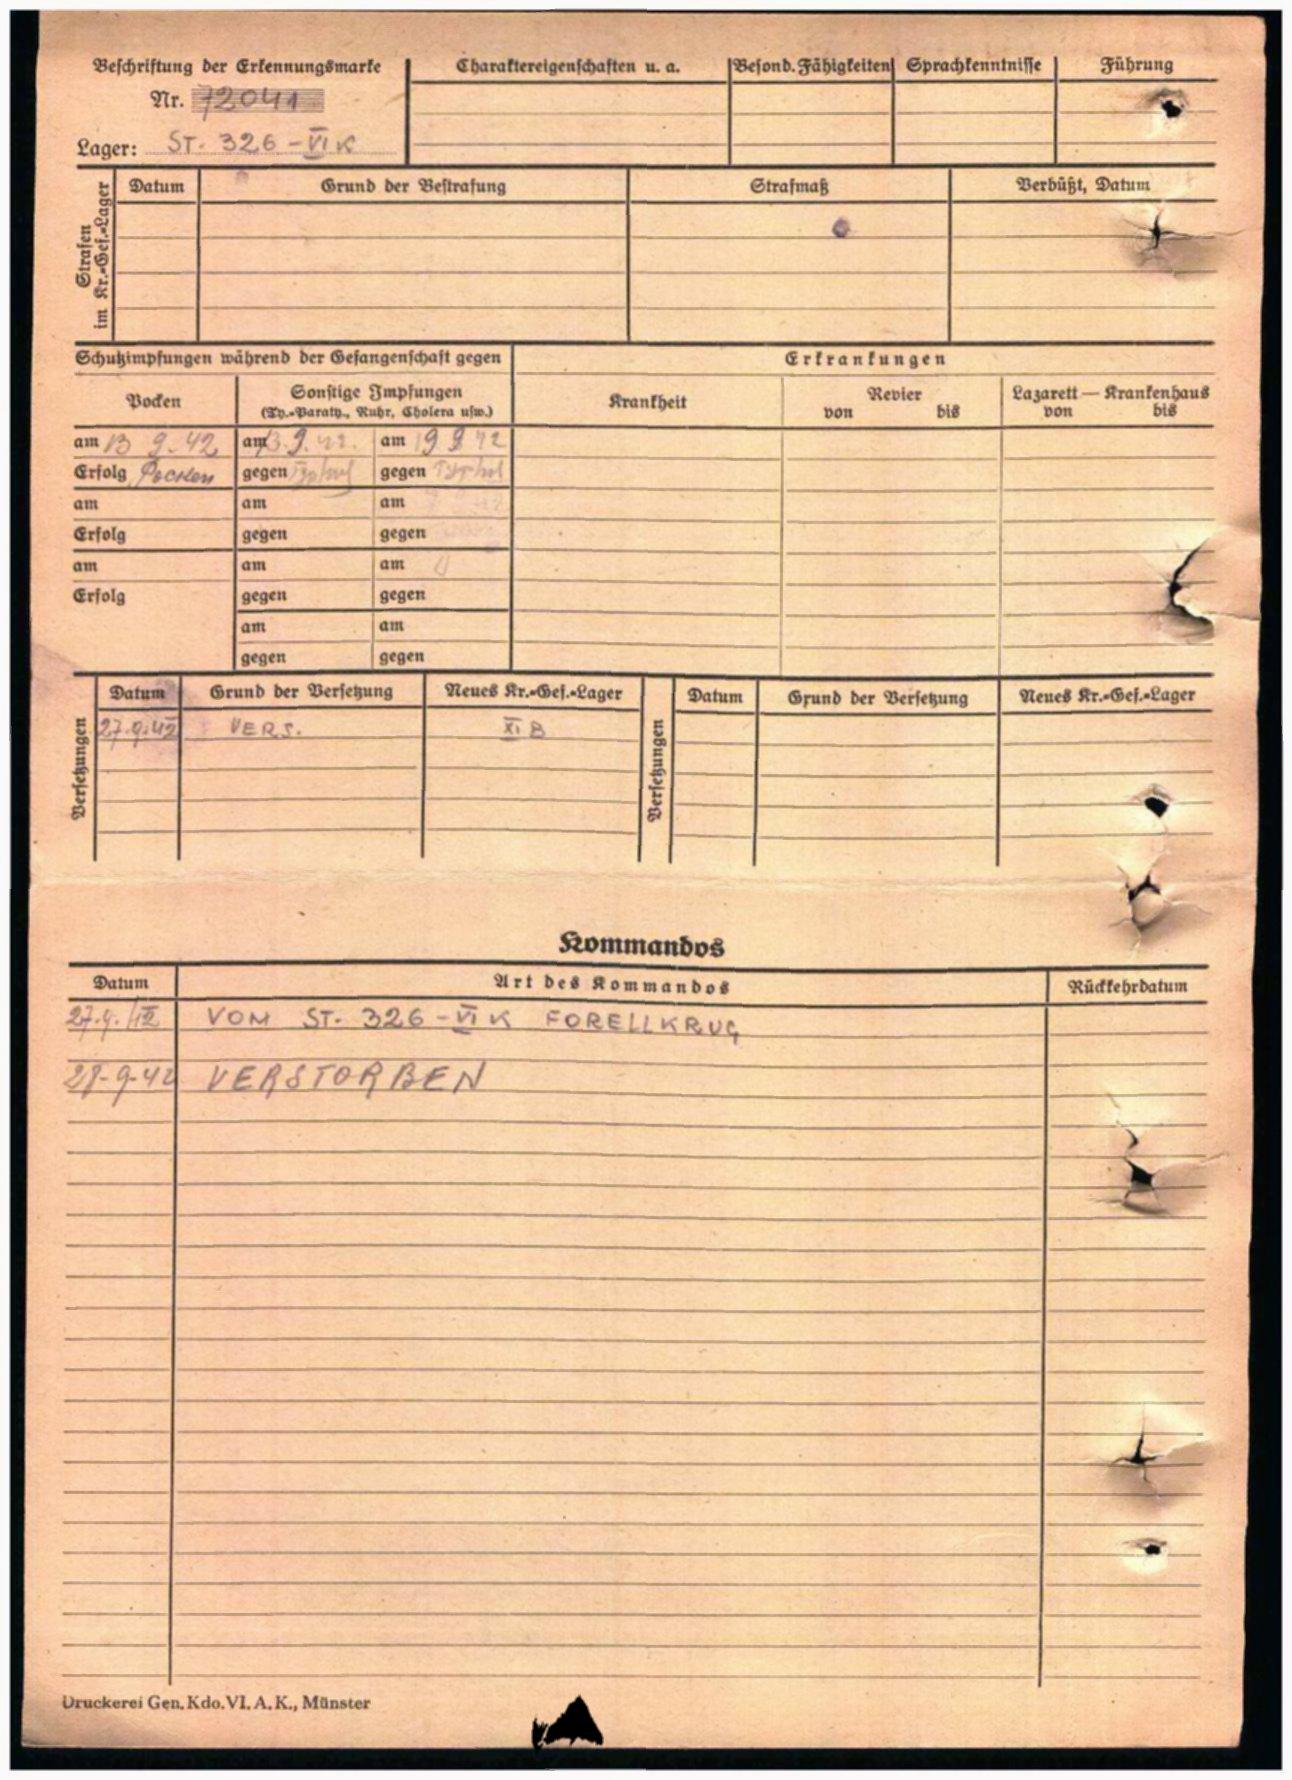 Beschriftung der Erkennungsmarke
Nr. 72041
Lager: ST. 326 - VI K
Charaktereigenschaften u. a.
Besond. Fähigkeiten
Sprachkenntnisse
Führung
Strafen im Kr.-Gef.-Lager
Datum
Grund der Bestrafung
Strafmaß
Verbüßt, Datum
Schutzimpfungen während der Gefangenschaft gegen
Erkrankungen
Pocken
Sonstige Impfungen
(Ty.-Paraty., Ruhr, Cholera usw.)
Krankheit
Revier
von bis
Lazarett — Krankenhaus
von bis
am 13 9. 42 am 13. 9. 42. am 19 9 42
Erfolg Pocken gegen Typhus gegen Typhus
am am am
Erfolg gegen gegen
am am am
Erfolg gegen gegen
am am
gegen gegen
Versetzungen
Datum Grund der Versetzung Neues Kr.-Gef.-Lager
27. 9. 42 VERS. XI B
Versetzungen
Datum Grund der Versetzung Neues Kr.-Gef.-Lager
Kommandos
Datum Art des Kommandos Rückkehrdatum
VOM ST. 326 - VI K FORELLKRUG
28-9-42 VERSTORBEN
Druckerei Gen. Kdo. VI. A. K., Münster